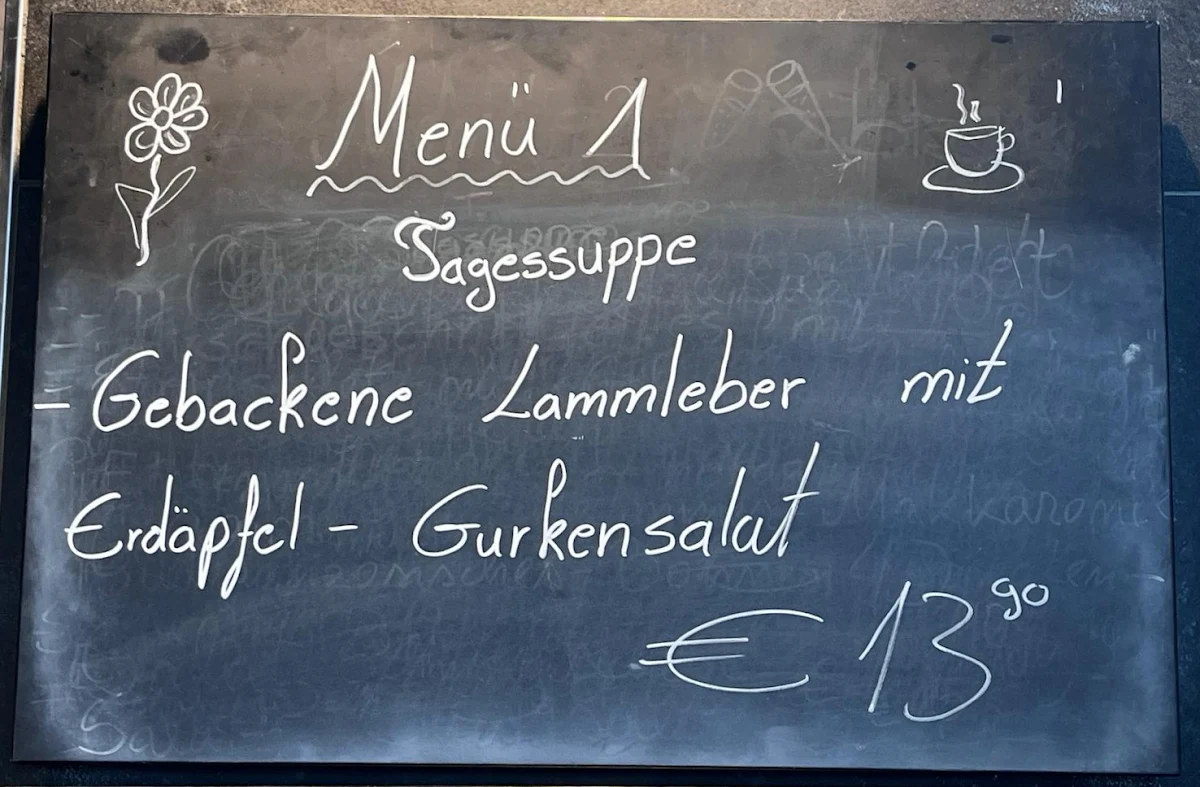 Menü 1
Tagessuppe
- Gebackene Lammleber mit
Erdäpfel - Gurkensalat
€ 13 90